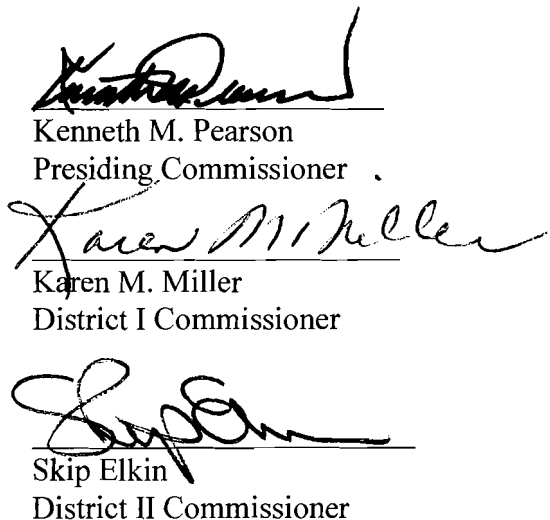 Kenneth M. Pearson
Presiding Commissioner
Karen M. Miller
Karen M. Miller
District I Commissioner
Skip Elkin
District II Commissioner